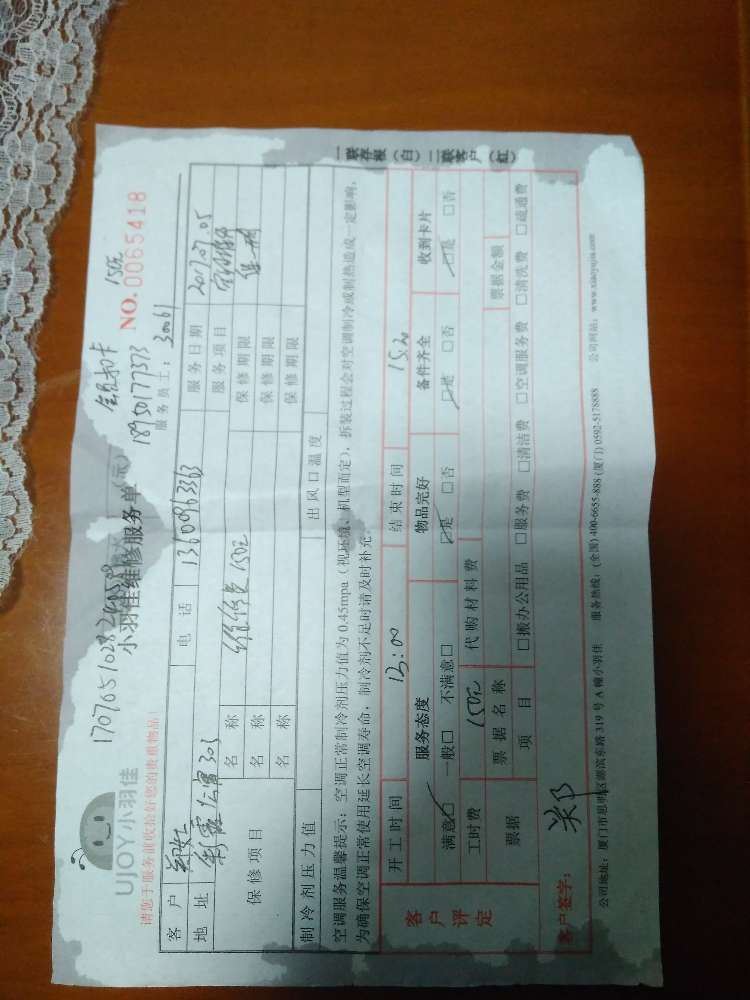 170765102824
全民扣卡 150元
UJOY小羽佳
小羽佳维修服务单
18950177373
NO. 0065418
请您于服务前收拾好您的贵重物品!
服务员工: 30061
客户
电话 13600963363
服务日期 2017.07.05
地址 彩霞公寓 305
服务项目
保修项目
名称 维修费150元
保修期限
名称
保修期限
名称
保修期限
制冷剂压力值
出风口温度
空调服务温馨提示:空调正常制冷剂压力值为 0.45mpa(视环境、机型而定),拆装过程会对空调制冷或制热造成一定影响,
为确保空调正常使用延长空调寿命,制冷剂不足时请及时补充。
客户评定
开工时间 13:00
结束时间 15:20
服务态度 物品完好 备件齐全 收到卡片
满意□ 一般□ 不满意□ □是 □否 □是 □否 □是 □否
工时费 150元 代购材料费
票据 票据名称 票据金额
项目 □搬办公用品 □服务费 □清洁费 □空调服务费 □清洗费 □疏通费
客户签字: 郑
公司地址:厦门市思明区湖滨东路 319 号 A 幢小羽佳 服务热线:(全国) 400-6655-888 (厦门) 0592-5178888 公司网站:www.xiaoyujia.com
一联存根(白)二联客户(红)